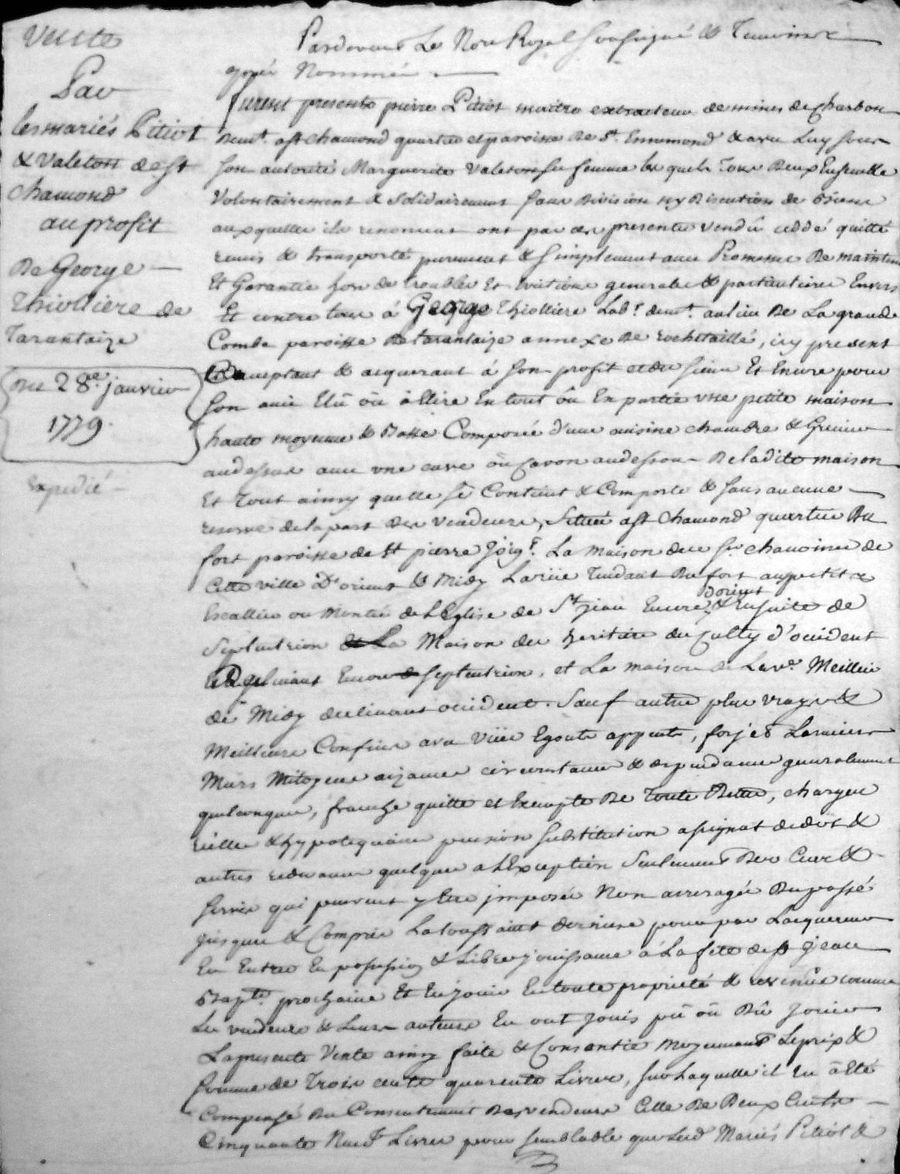 Vente
Par
les mariés Pitiot
& Valeton de St
chamond
au profit
De George
Thiolliere de
Tarantaize
Du 28e. janvier
1779.
Expedié
Pardevant Le Nore Royal soussigné & Temoins
apres Nommés
furent presents pierre Pitiot maitre extracteur de mines de Charbon
demt. a St chamond quartier et paroisse de St. Ennemond & avec Luy sous
son autorité Marguerite Valeton sa femme lesquels Tous Deux Ensemble
Volontairement & Solidairement sans Division ny Discution de biens
auxquelles ils renoncent ont par ces presentes vendû cédé quitté
remis & transporté purement & simplement avec Promesse De maintenir
Et Garantie fors de troubles Et eviction generale & particuliere Envers
Et contre tous à George Thiolliere Labr. demt. au lieu De La grande
Combe paroisse De tarantaize annexe De rochetaillé, icy present
acceptant & acquerant à son profit et du sien Et Encore pour
son amis Elû où à Elire En tout où En partie une petite maison
haute moyenne & Basse Composée d'une cuisine chambre & Grenier
audessus avec une cave où Cavon audessous De ladite maison
Et Tout ainsy quelle se Contient & Comporte & sans aucune
reserve de la part des vendeurs, Sittuée a St Chamond quartier du
fort paroisse de St pierre Joigt. La maison des srs chanoines de
Cette ville D'orient & Midy La rüe Tendant Du fort au petit
Escallier ou Montée de L'Eglise de St. jean Encore d'orient & Ensuite de
Septentrion La Maison des heritiers du Culty d'occident
Declinant Encore Septentrion, et La maison de La ve. Meillier
de Midy declinant occident. Sauf autres plus vrays &
Meilleurs Confins avec vües Egouts appents, forjets Larmiers
Murs Mitoyens aizances circonstances & dependances generalement
quelconques, franche quitte et Exempte De Toute Dettes, charges
vieilles & hypotequaires pension substitution assignat de dot &
autres redevances quelques a L'Exception Seulement Des Cens &
servis qui peuvent y Etre imposés Non arreragés Du passé
jusques & Compris La toussaint derniere pour par Lacquereur
En Entrer En possession & Libre jouissance à La fete de St jean
Bapte. prochaine Et En jouir En toute proprieté & revenus comme
Les vendeurs & Leurs auteurs En ont jouis pû où Dû jouir
La presente Vente ainsy faite & Consentie Moyennant Le prix &
somme de Trois cents quarente Livres, sur Laquelle il En à Eté
Compensé Du Consentement Des vendeurs Celle De Deux Cents
Cinquante Neuf Livres pour semblable que Lesd Mariés Pitiot &